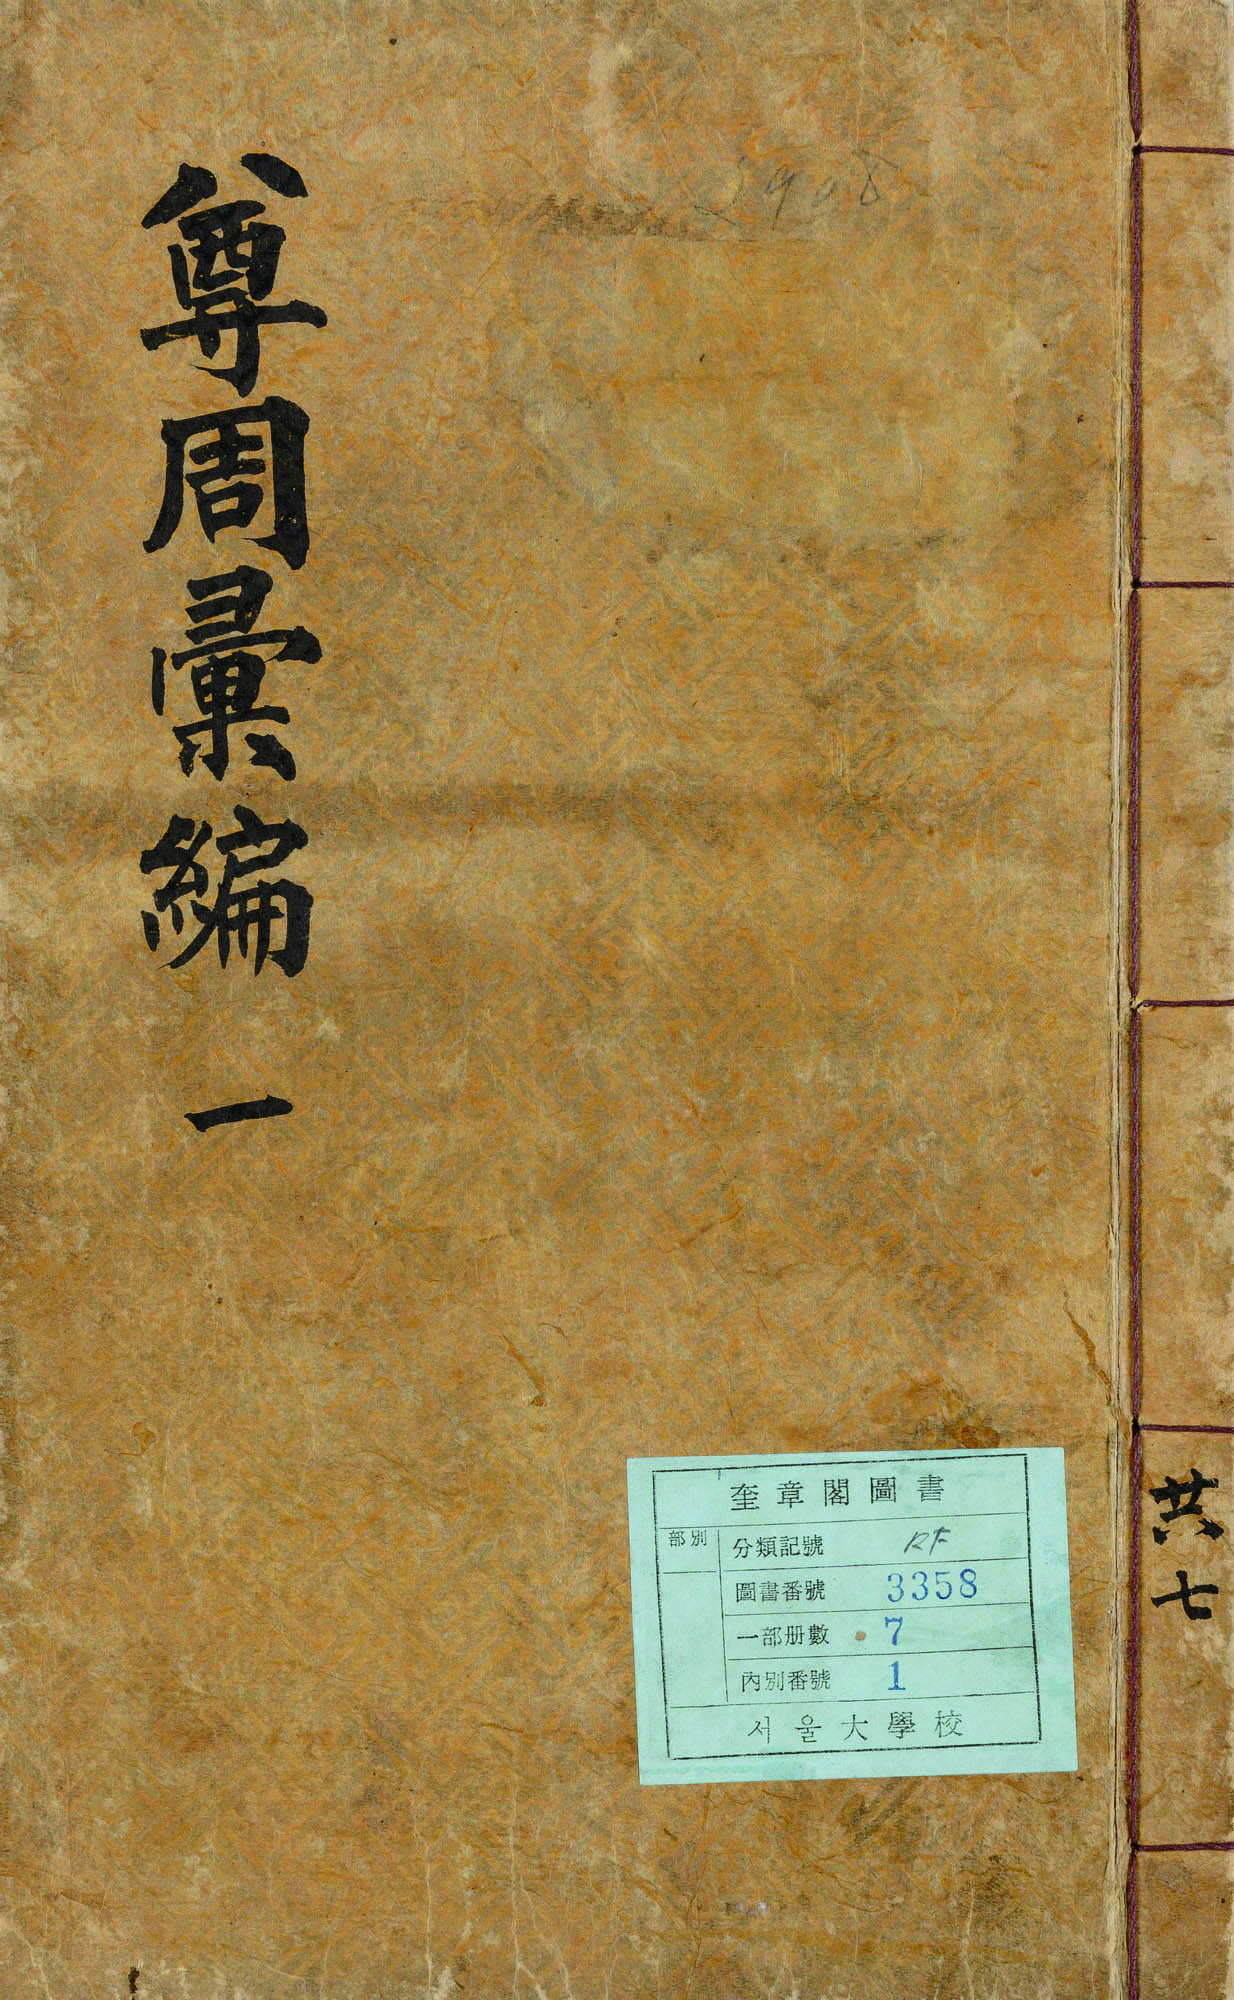 尊周彙編 一
2908
共七
奎章閣圖書
部別
分類記號 RF
圖書番號 3358
一部册數 7
內別番號 1
서울大學校